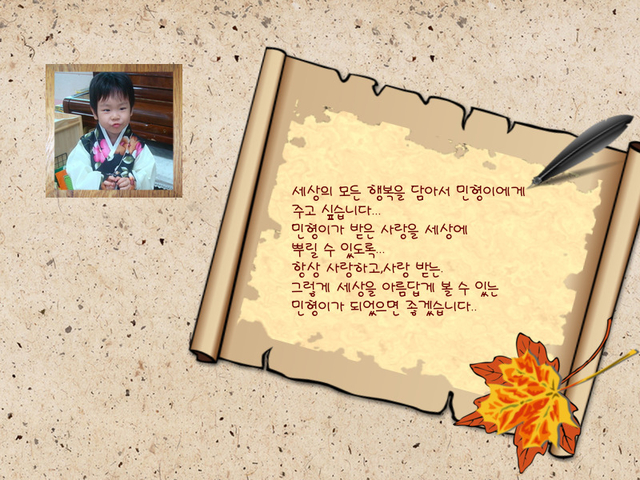 세상의 모든 행복을 담아서 민형이에게
주고 싶습니다...
민형이가 받은 사랑을 세상에
뿌릴 수 있도록...
항상 사랑하고,사랑 받는.
그렇게 세상을 아름답게 볼 수 있는
민형이가 되었으면 좋겠습니다..